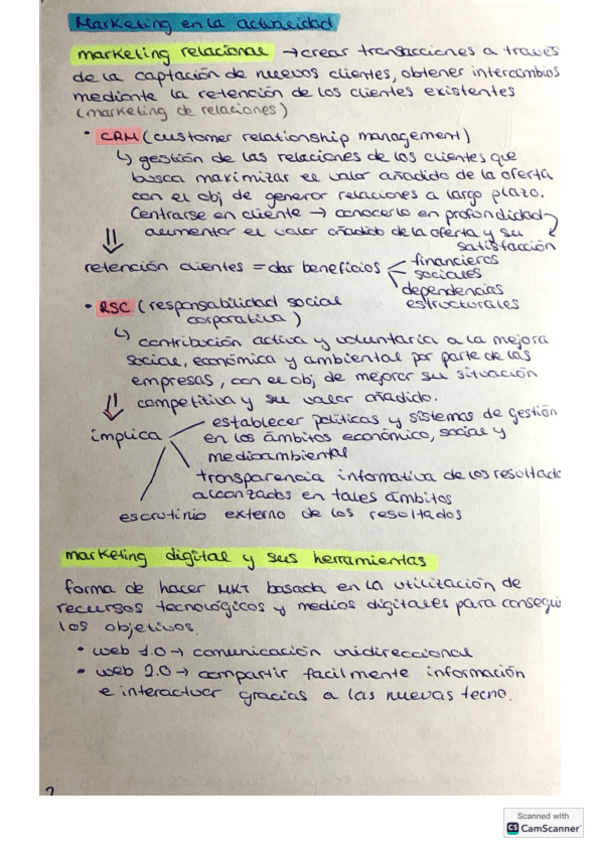 Marketing en la actualidad
marketing relacional → crear transacciones a través
de la captación de nuevos clientes, obtener intercambios
mediante la retención de los clientes existentes
(marketing de relaciones)
• CRM (customer relationship management)
↳ gestión de las relaciones de los clientes que
busca maximizar el valor añadido de la oferta
con el obj de generar relaciones a largo plazo.
Centrarse en cliente → conocerlo en profundidad
aumentar el valor añadido de la oferta y su
satisfacción
retención clientes = dar beneficios
financieros
sociales
dependencias
estructurales
• RSC (responsabilidad social
corporativa)
↳ contribución activa y voluntaria a la mejora
social, económica y ambiental por parte de las
empresas, con el obj de mejorar su situación
competitiva y su valor añadido.
implica
establecer políticas y sistemas de gestión
en los ámbitos económico, social y
medioambiental
transparencia informativa de los resultado
alcanzados en tales ámbitos
escrutinio externo de los resultados
marketing digital y sus herramientas
forma de hacer MKT basada en la utilización de
recursos tecnológicos y medios digitales para consegui
los objetivos.
• web 1.0 → comunicación unidireccional
• web 2.0 → compartir facilmente información
e interactuar gracias a las nuevas tecno.
Scanned with
CS CamScanner